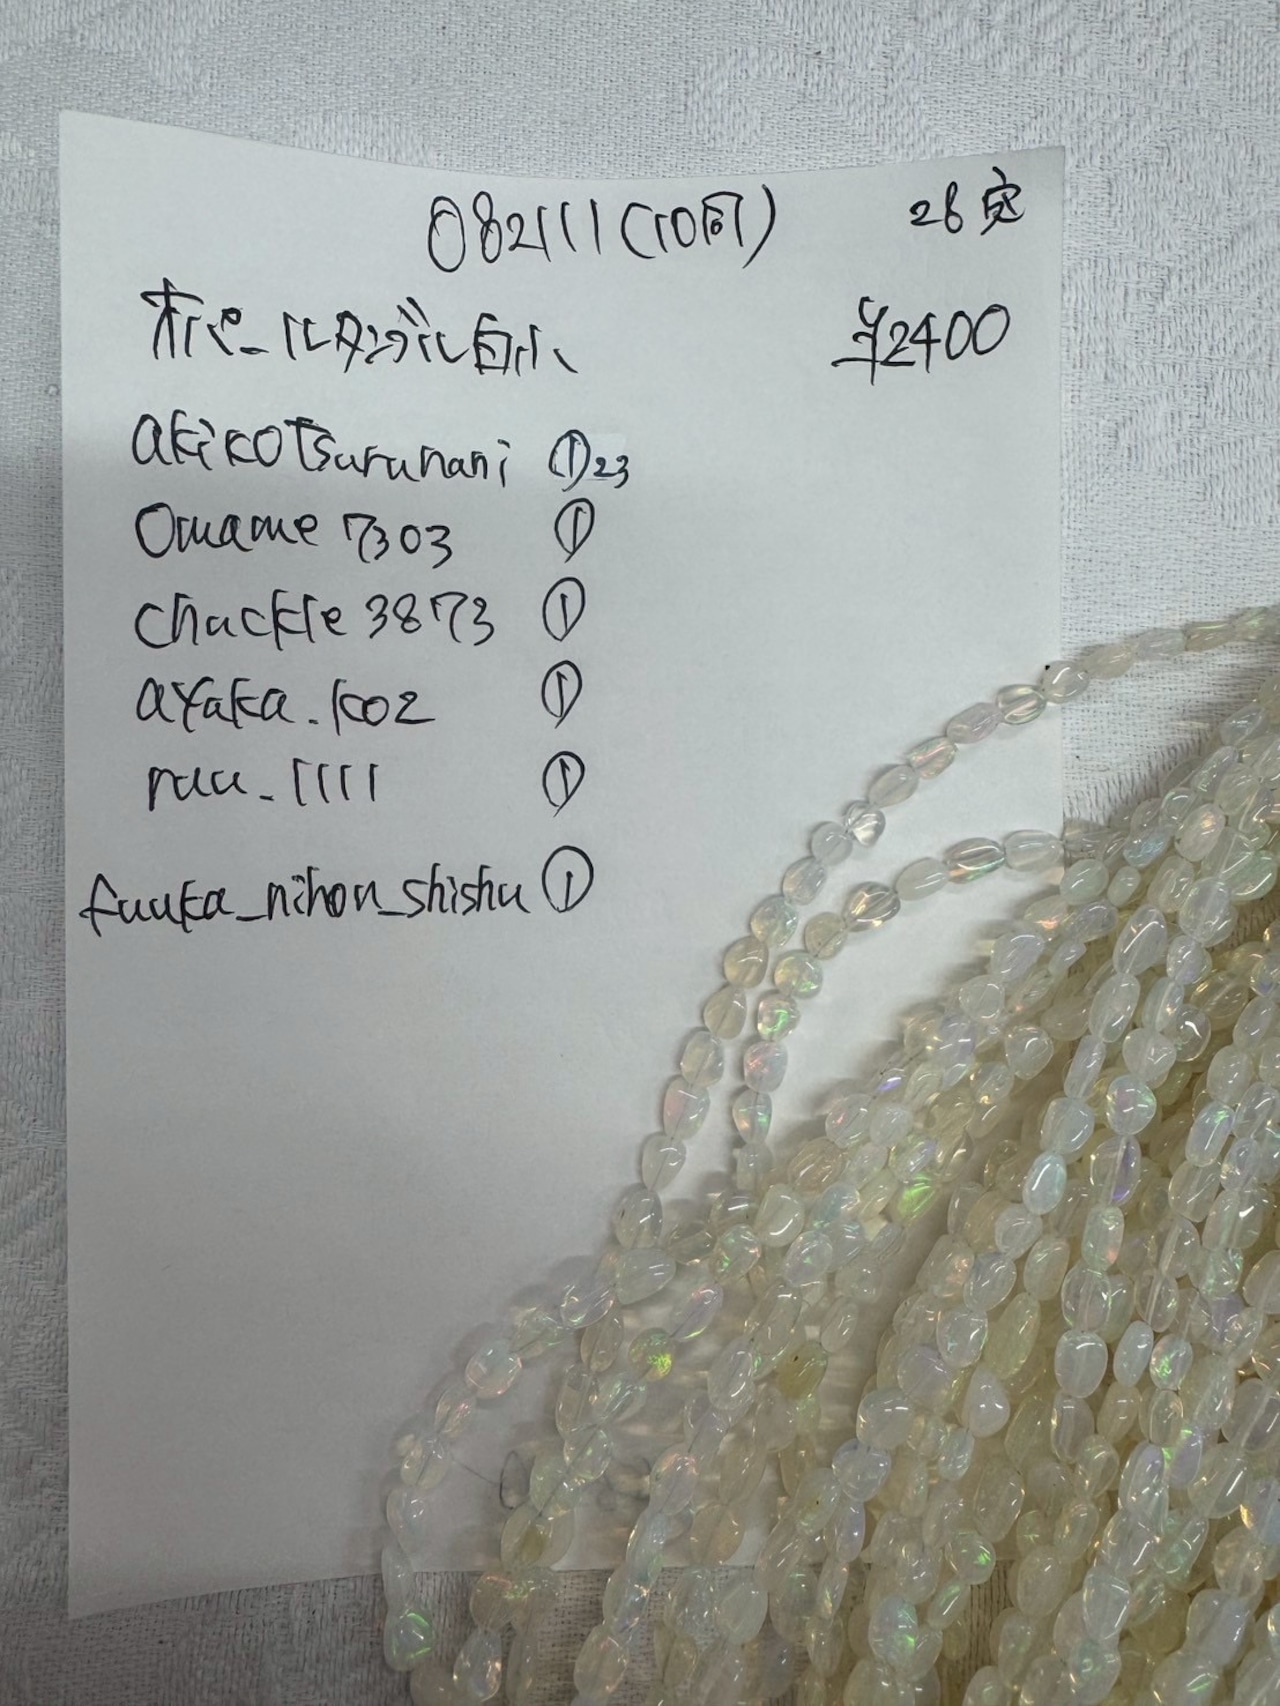 082111(10同) 26定
オパールタンブル白小 ¥2400
akikotsurunani ①23
Omame7303 ①
chackle3873 ①
ayaka.k02 ①
ruu_1111 ①
fuuka_nihon_shishu ①